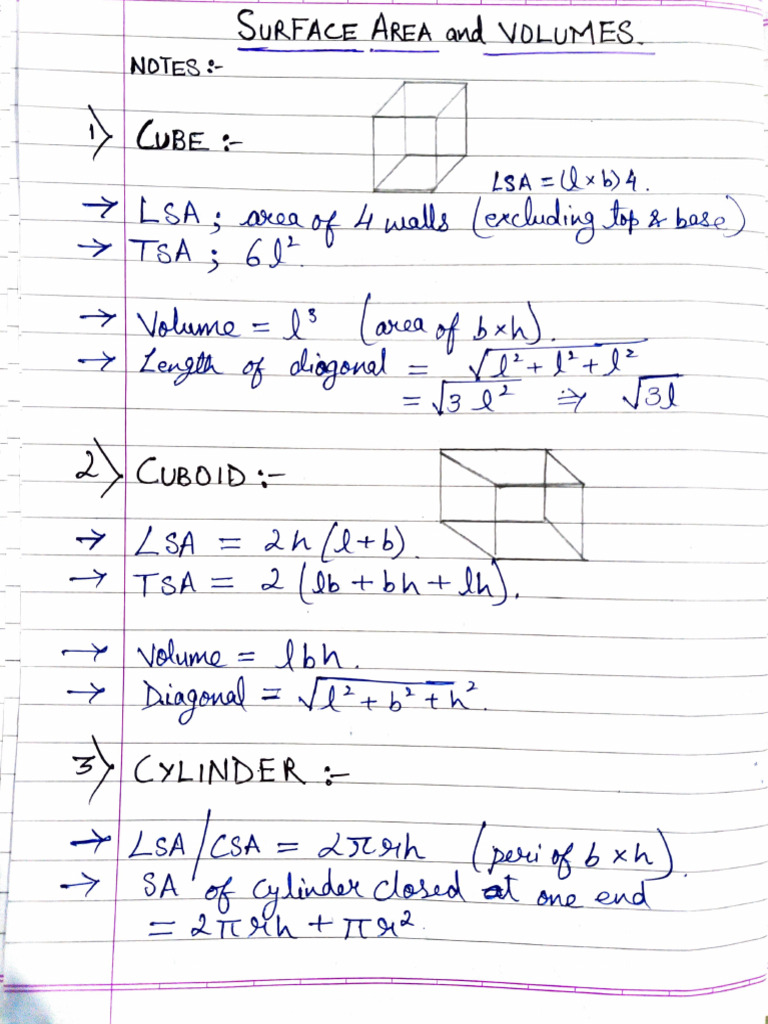 SURFACE AREA and VOLUMES.
NOTES :-
1) CUBE :-
LSA = (l × b) 4.
→ LSA ; area of 4 walls (excluding top & base)
→ TSA ; 6l².
→ Volume = l³ (area of b × h).
→ Length of diagonal = √l² + l² + l²
= √3 l² ⇒ √3l
2) CUBOID :-
→ LSA = 2h (l + b).
→ TSA = 2 (lb + bh + lh).
→ Volume = lbh.
→ Diagonal = √l² + b² + h².
3) CYLINDER :-
→ LSA/CSA = 2πrh (peri of b × h).
→ SA of cylinder closed at one end
= 2πrh + πr².